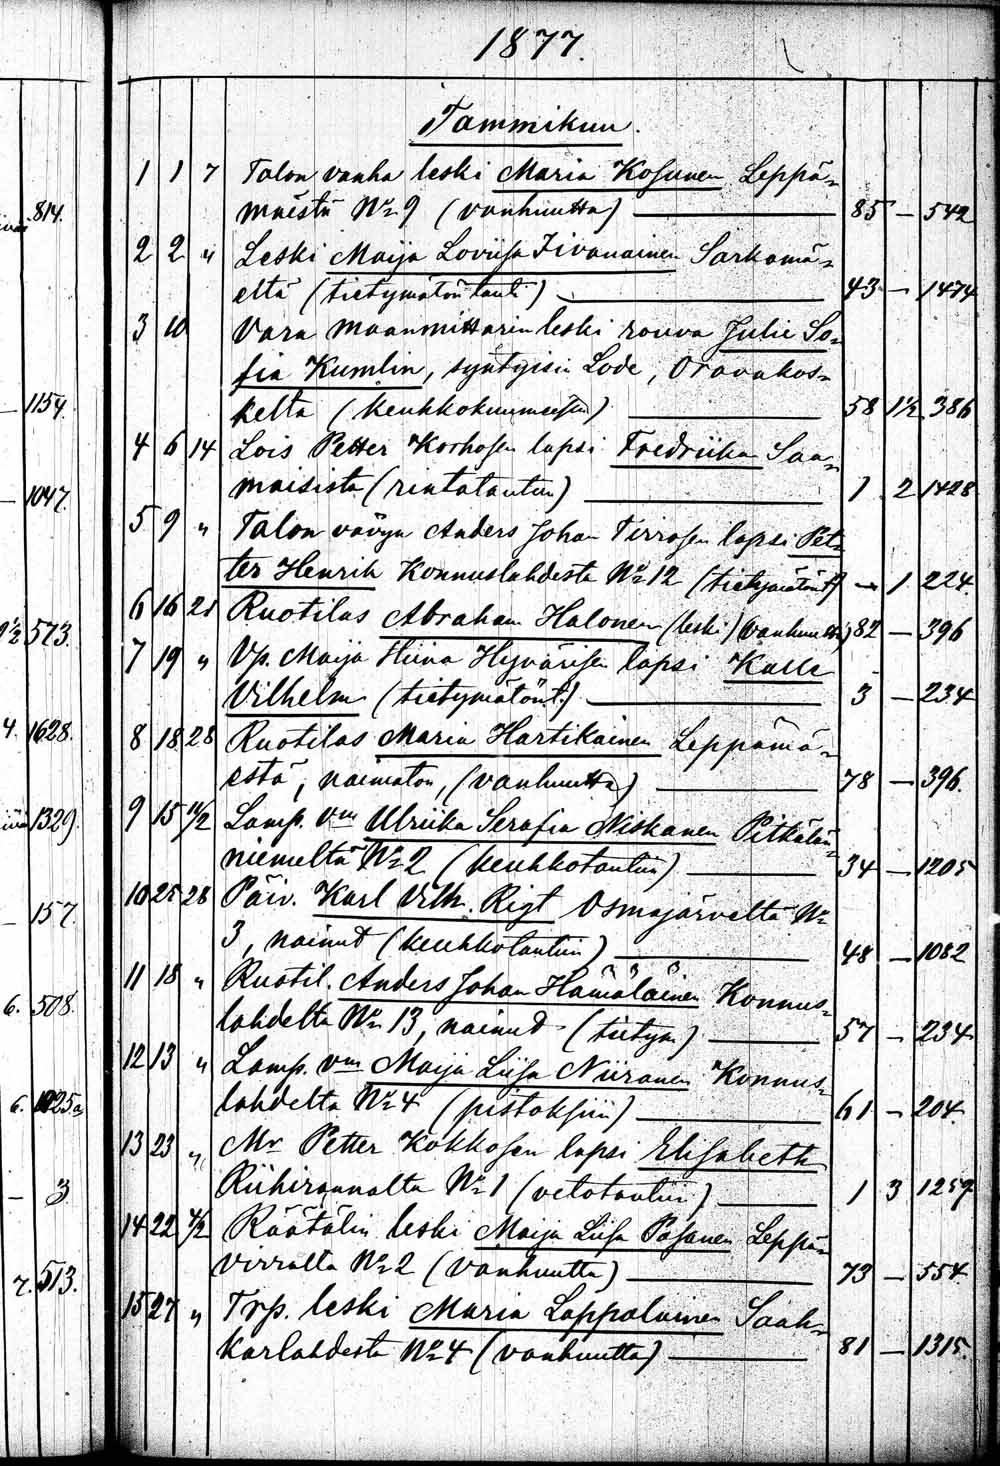 1877.
Tammikuu.
1 1 7 Talon vanha leski Maria Kosunen Leppä-
814. mäestä No 9 (vanhuutta) 85 — 542
2 2 " Leski Maija Loviisa Iivanainen Sarkamä-
eltä (tietymätön tauti) 43 — 1474
3 10 Vara maanmittarin leski rouva Julie So-
fia Kumlin, syntyisin Lode, Oravakos-
1154. kelta 58 1½ 386
4 6 14 Lois Petter Korhosen lapsi Fredriika Saa-
1047. maisista (rintatautiin) 1 2 1428
5 9 " Talon vävyn Anders Johan Tirrosen lapsi Pet-
ter Henrik Konnuslahdesta No 12 (tietymätönt) — 1 224.
573. 6 16 21 Ruotilas Abraham Halonen (leski) (vanhuutta) 82 — 396
7 19 " Vp. Maija Stiina Hyvärisen lapsi Kalle
Vilhelm (tietymätönt.) 3 — 234
4. 1628. 8 18 28 Ruotilas Maria Hartikainen Leppämä-
estä, naimaton, (vanhuutta) 78 — 396.
1329. 9 15 11/2 Lamp. vm Ulriika Serafia Niskanen Pitkälän-
niemeltä No 2 (keuhkotautiin) 34 — 1205
157. 10 25 28 Päiv. Karl Vilh. Rigt Osmajärveltä No
3, nainut (keuhkotautiin) 48 — 1082
6. 508. 11 18 " Ruotil. Anders Johan Hämäläinen Konnus-
lahdelta No 13, nainut (tietym) 57 — 234
12 13 " Lamp. vm Maija Liisa Niiranen Konnus-
6. lahdelta No 4 (pistoksiin) 61 — 204.
13 23 " Mr Petter Kokkosen lapsi Elisabeth
3. Riihirannalta No 1 (vetotautiin) 1 3 1259
14 22 4/2 Räätälin leski Maija Liisa Pasanen Leppä-
7. 513. virralta No 2 (vanhuutta) 73 — 554
15 27 " Trp. leski Maria Lappalainen Saah-
karlahdesta No 4 (vanhuutta) 81 — 1315.